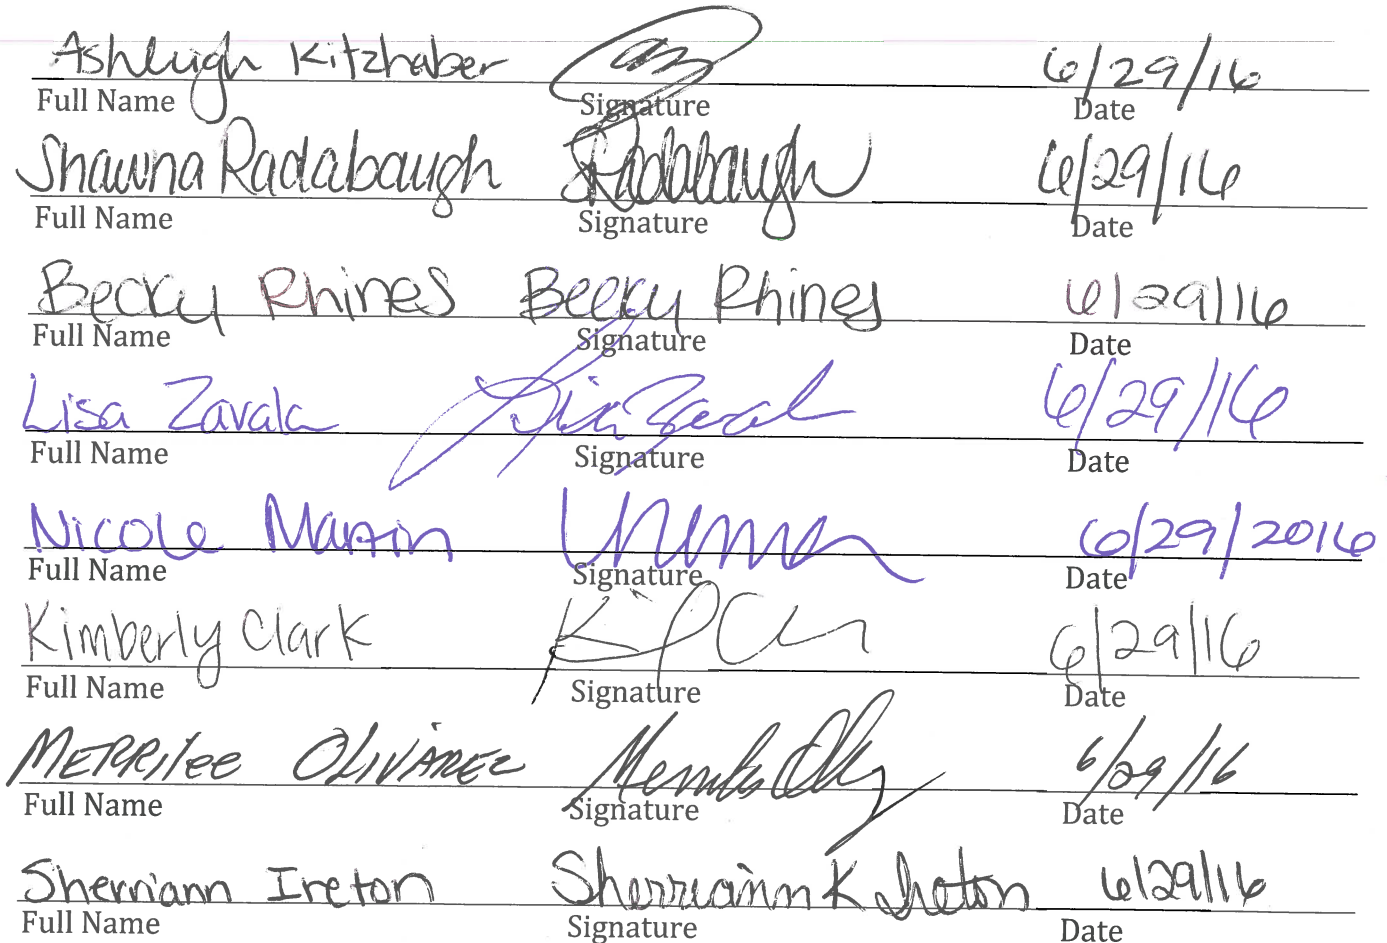 Ashleigh Kitzhaber 6/29/16
Full Name Signature Date
Shawna Radabaugh SRadabaugh 6/29/16
Full Name Signature Date
Becky Rhines Becky Rhines 6/29/16
Full Name Signature Date
Lisa Zavala Lisa Zavala 6/29/16
Full Name Signature Date
Nicole Martin 6/29/2016
Full Name Signature Date
Kimberly Clark 6/29/16
Full Name Signature Date
MERRilee OLIVAREZ 6/29/16
Full Name Signature Date
Sherriann Ireton Sherriann K Ireton 6/29/16
Full Name Signature Date